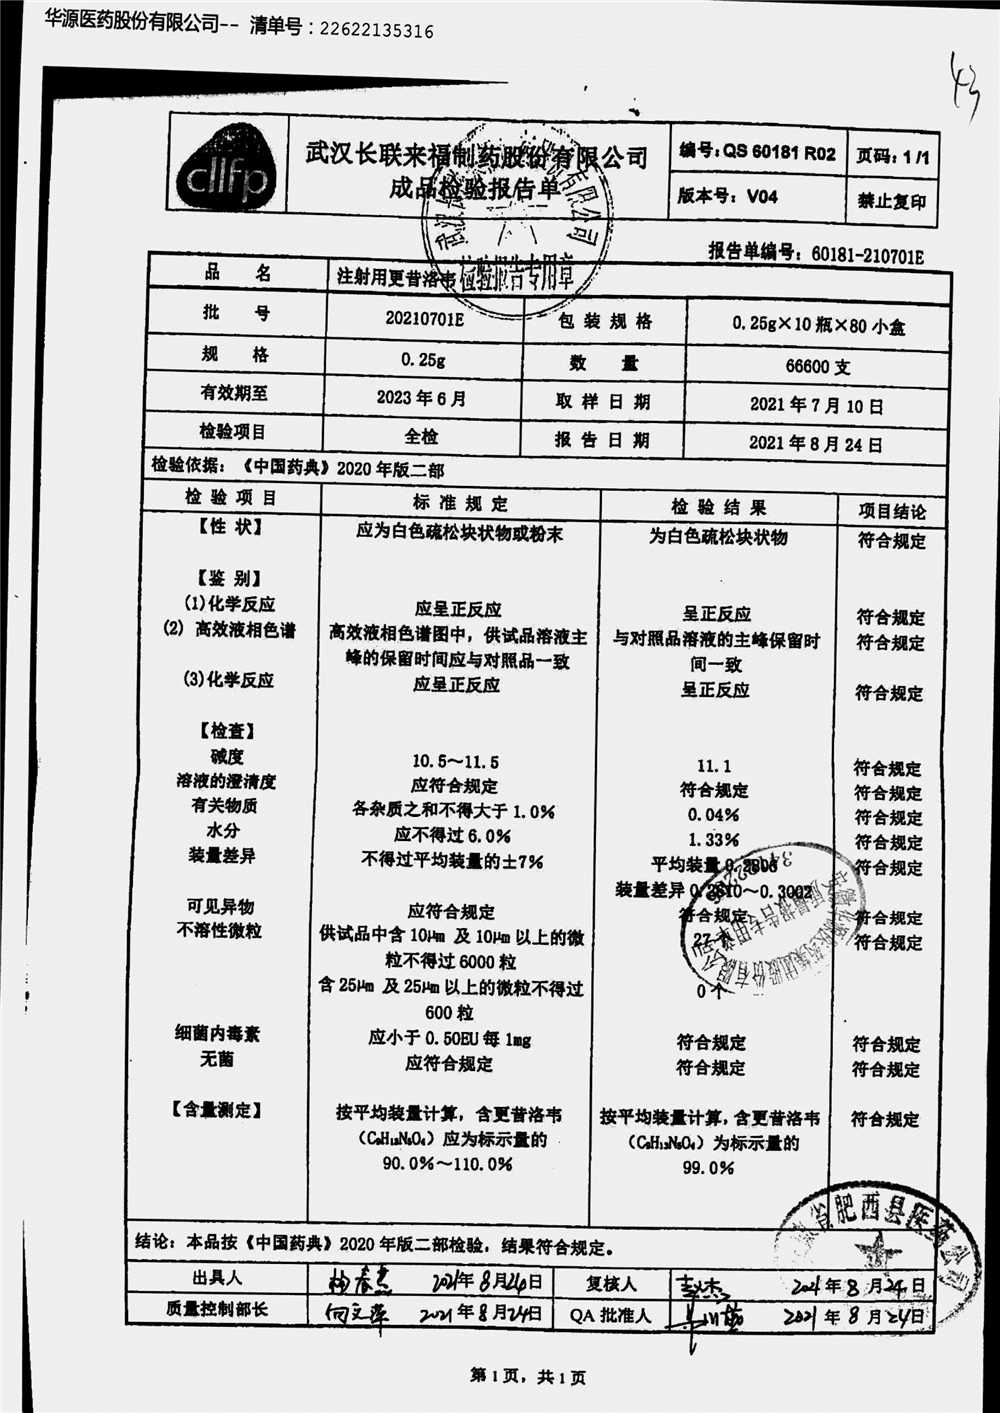 华源医药股份有限公司-- 清单号：22622135316
43
cllfp
武汉长联来福制药股份有限公司
成品检验报告单
编号：QS 60181 R02
页码：1/1
版本号：V04
禁止复印
检验报告专用章
报告单编号：60181-210701E
品 名 注射用更昔洛韦
批 号 20210701E 包装规格 0.25g×10瓶×80小盒
规 格 0.25g 数 量 66600支
有效期至 2023年6月 取样日期 2021年7月10日
检验项目 全检 报告日期 2021年8月24日
检验依据：《中国药典》2020年版二部
检验项目 标准规定 检验结果 项目结论
【性 状】 应为白色疏松块状物或粉末 为白色疏松块状物 符合规定
【鉴 别】
(1)化学反应 应呈正反应 呈正反应 符合规定
(2) 高效液相色谱 高效液相色谱图中，供试品溶液主 与对照品溶液的主峰保留时 符合规定
峰的保留时间应与对照品一致 间一致
(3)化学反应 应呈正反应 呈正反应 符合规定
【检查】
碱度 10.5～11.5 11.1 符合规定
溶液的澄清度 应符合规定 符合规定 符合规定
有关物质 各杂质之和不得大于1.0% 0.04% 符合规定
水分 应不得过6.0% 1.33% 符合规定
装量差异 不得过平均装量的±7% 平均装量 符合规定
装量差异 0.2810～0.3002
可见异物 应符合规定 符合规定 符合规定
不溶性微粒 供试品中含10μm 及10μm以上的微 27个 符合规定
粒不得过6000粒
含25μm 及25μm以上的微粒不得过 0个
600粒
细菌内毒素 应小于0.50EU每1mg 符合规定 符合规定
无菌 应符合规定 符合规定 符合规定
【含量测定】 按平均装量计算，含更昔洛韦 按平均装量计算，含更昔洛韦 符合规定
（C₉H₁₃N₅O₄）应为标示量的 （C₉H₁₃N₅O₄）为标示量的
90.0%～110.0% 99.0%
省肥西县医药公司
结论：本品按《中国药典》2020年版二部检验，结果符合规定。
出具人 杨春杰 2021年8月24日 复核人 2021年8月24日
质量控制部长 向文萍 2021年8月24日 QA批准人 2021年8月24日
第1页，共1页